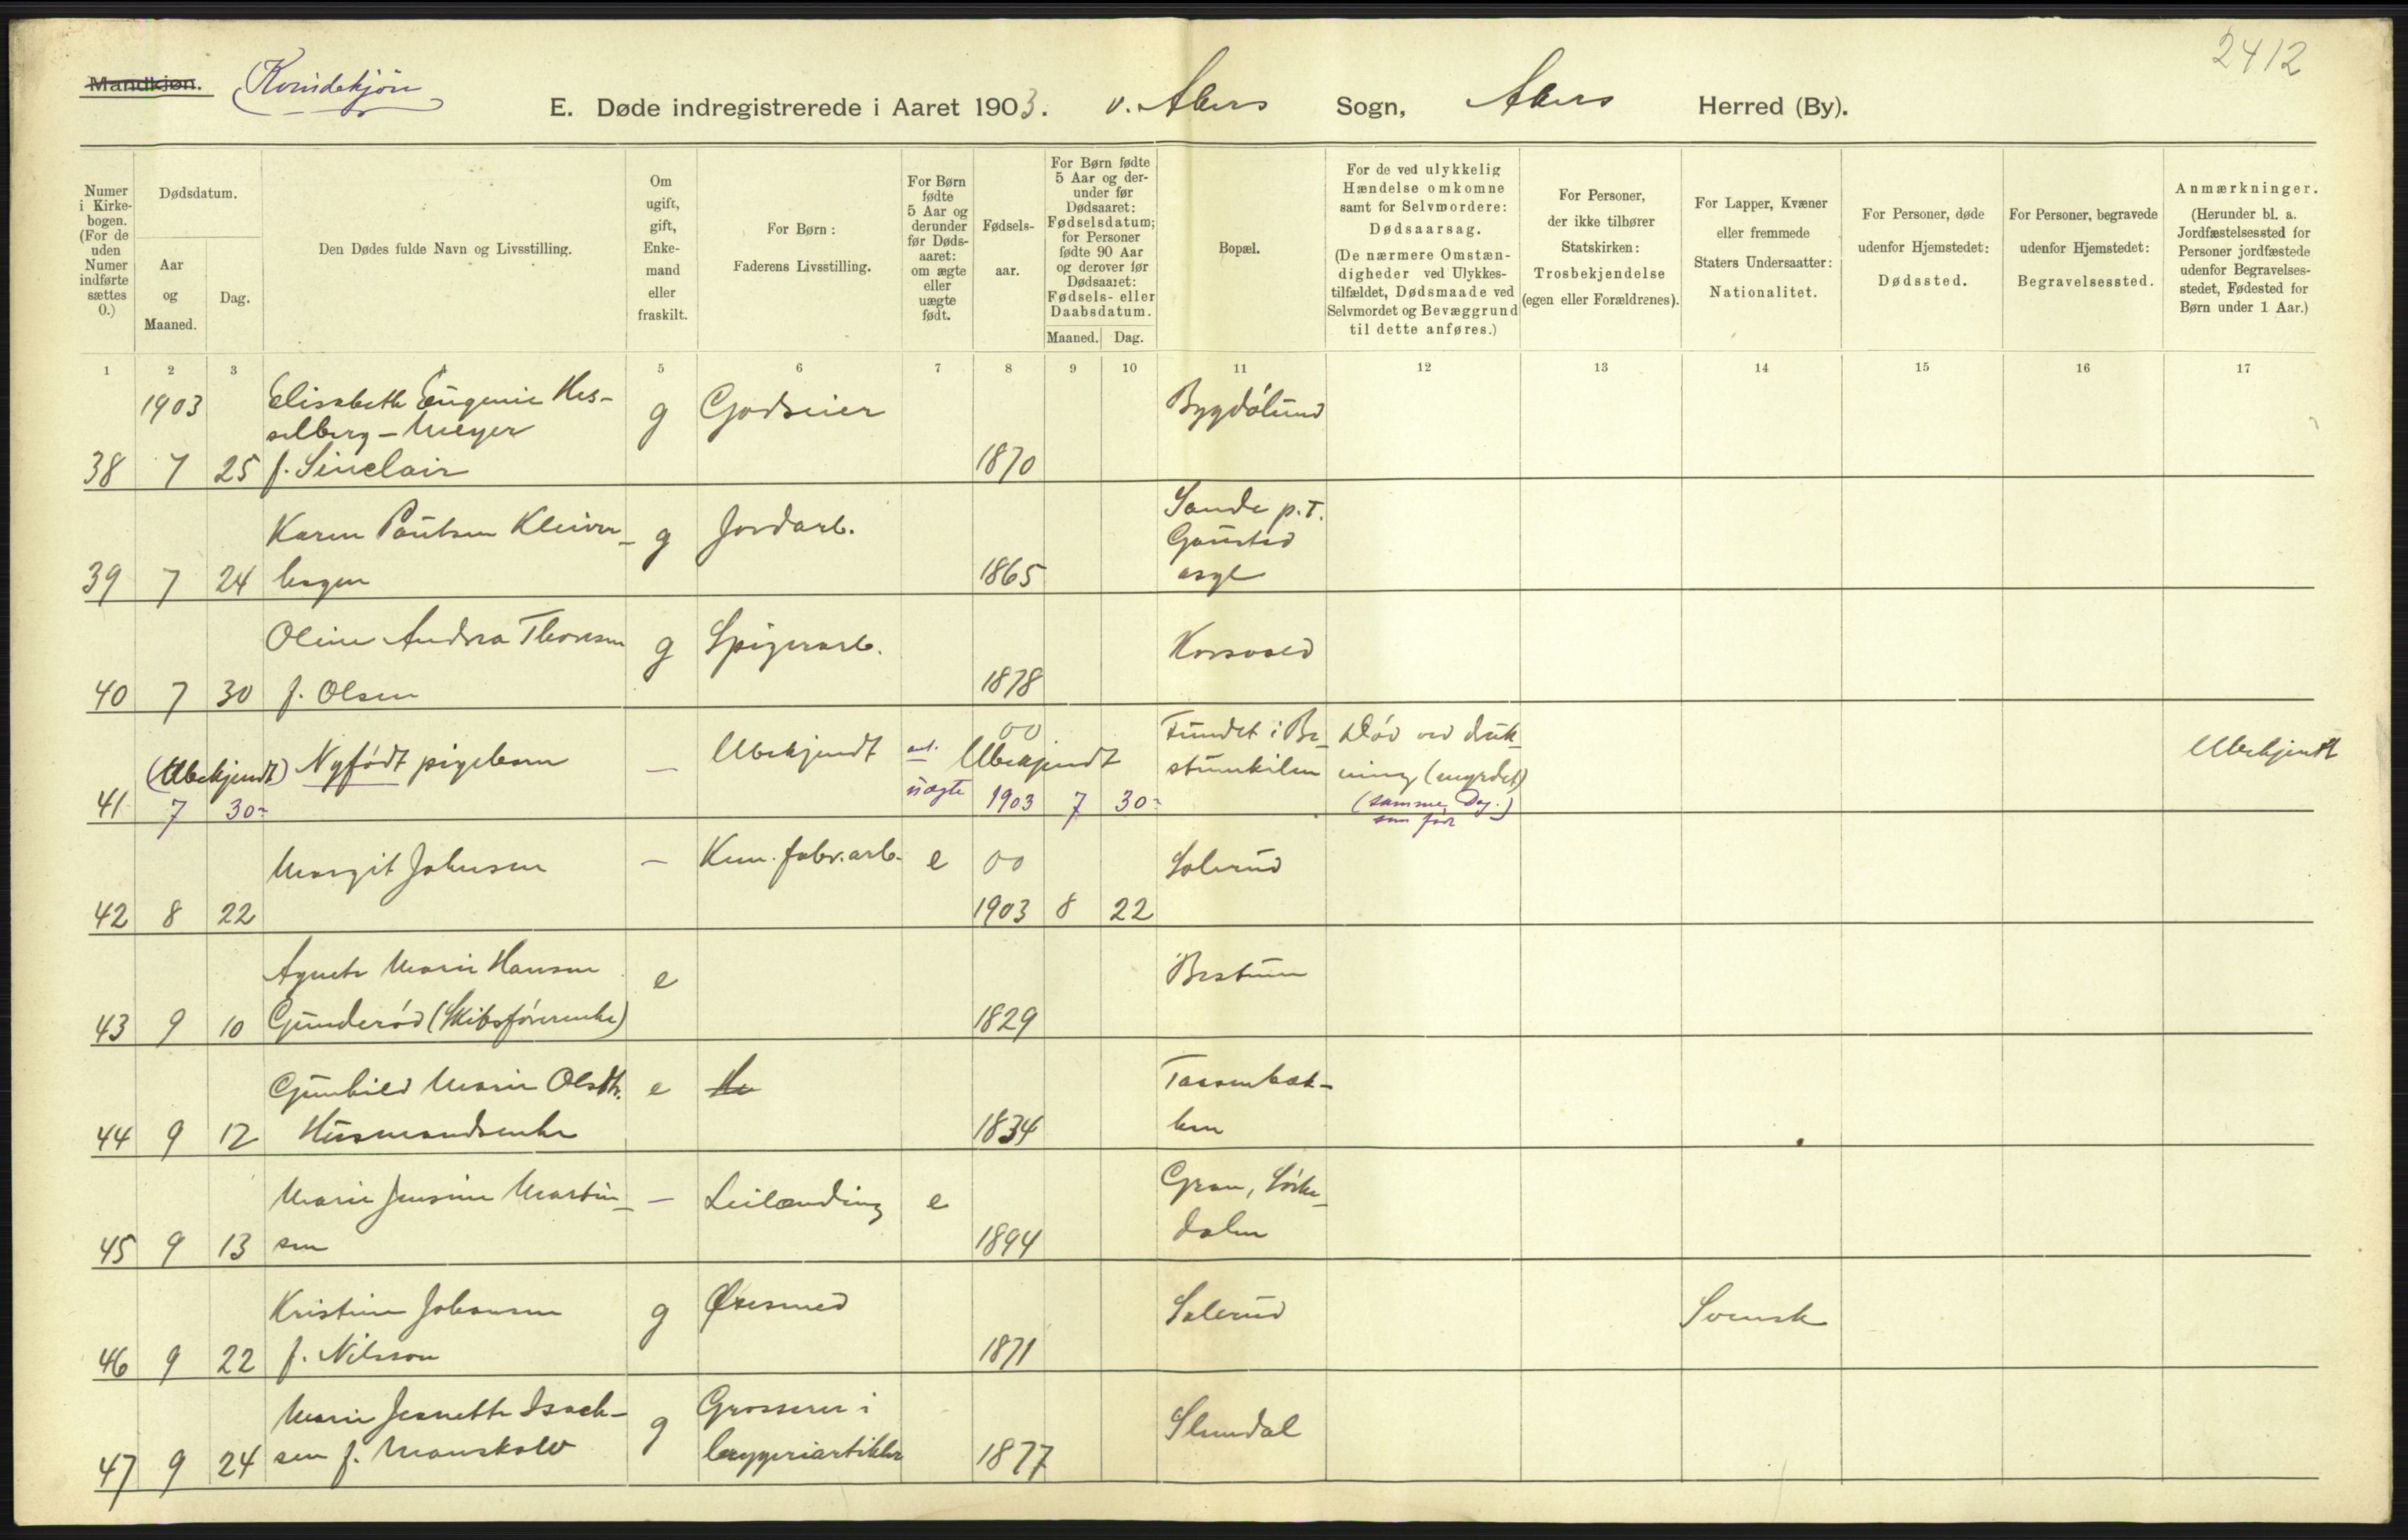 2412
Mandkjøn. Kvindekjøn
E. Døde indregistrerede i Aaret 1903. V. Akers Sogn, Akers Herred (By).
Numer i Kirkebogen. (For de uden Numer indførte sættes 0.)
Dødsdatum.
Aar og Maaned.
Dag.
Den Dødes fulde Navn og Livsstilling.
Om ugift, gift, Enkemand eller fraskilt.
For Børn: Faderens Livsstilling.
For Børn fødte 5 Aar og derunder før Dødsaaret: om ægte eller uægte født.
Fødselsaar.
For Børn fødte 5 Aar og derunder før Dødsaaret: Fødselsdatum; for Personer fødte 90 Aar og derover før Dødsaaret: Fødsels- eller Daabsdatum.
Maaned. Dag.
Bopæl.
For de ved ulykkelig Hændelse omkomne samt for Selvmordere: Dødsaarsag. (De nærmere Omstændigheder ved Ulykkestilfældet, Dødsmaade ved Selvmordet og Bevæggrund til dette anføres.)
For Personer, der ikke tilhører Statskirken: Trosbekjendelse (egen eller Forældrenes).
For Lapper, Kvæner eller fremmede Staters Undersaatter: Nationalitet.
For Personer, døde udenfor Hjemstedet: Dødssted.
For Personer, begravede udenfor Hjemstedet: Begravelsessted.
Anmærkninger. (Herunder bl. a. Jordfæstelsessted for Personer jordfæstede udenfor Begravelsesstedet, Fødested for Børn under 1 Aar.)
1 2 3 5 6 7 8 9 10 11 12 13 14 15 16 17
1903 Elisabeth Eugenie Hes- g Godseier Bygdølund
selberg-Meyer
38 7 25 f. Sinclair 1870
Karen Paulsen Kleiver- g Jordarb. Sande p.T.
Gaustad
39 7 24 hagen 1865 asyl
Oline Andrea Thoresen g Spigerarb. Korsvold
40 7 30 f. Olsen 1878
(Ubekjendt) Nyfødt pigebarn — Ubekjendt ant. 00 Ubekjendt Fundet i Be- Død ved druk- Ubekjendt
stumkilen ning (myrdet)
41 7 30 uægte 1903 7 30 (samme Dag)
som født
Margit Johnsen — Kem. fabr. arb. e 00 Solerud
42 8 22 1903 8 22
Agnete Marie Hansen e Bestum
43 9 10 Gunderød (Skibsførerenke) 1829
Gunhild Marie Olsdtr. e Hu Taasenbak-
44 9 12 Husmandsenke 1834 ken
Marie Jensine Martin- — Leilænding e Gran, Sørke-
45 9 13 sen 1894 dalen
Kristine Johansen g Øxesmed Solerud Svensk
46 9 22 f. Nilsson 1871
Marie Jeanette Isach- g Grosserer i Slemdal
47 9 24 sen f. Manskow bryggeriartikler 1877